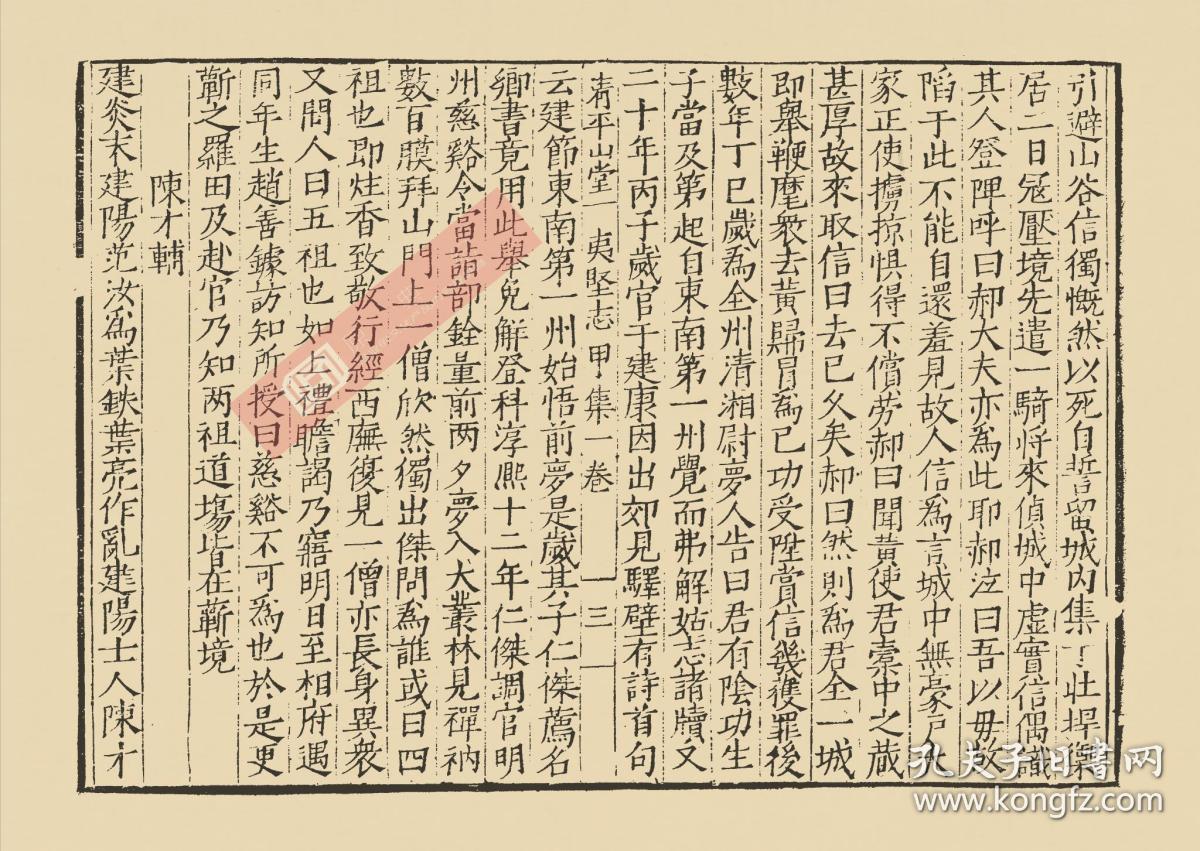 引避山谷信獨慨然以死自誓留城内集丁壯捍禦
居二日冦壓境先遣一騎将來偵城中虚實信偶識
其人登陴呼曰郝大夫亦為此耶郝泣曰吾以毋故
陷于此不能自還羞見故人信為言城中無豪戸大
家正使擄掠惧得不償劳郝曰聞黄使君橐中之蔵
甚厚故來取信曰去已乆矣郝曰然則為君全一城
即舉鞭麾衆去黄歸冐為已功受陞賞信幾獲罪後
數年丁巳歳為全州清湘尉夢人告曰君有陰功生
子當及第起自東南第一州覺而弗解姑志諸牘又
二十年丙子歳官于建康因出郊見驛壁有詩首句
清平山堂 夷堅志甲集一卷 十三
云建節東南第一州始悟前夢是歳其子仁傑薦名
鄉書竟用此舉免解登科淳熙十二年仁傑調官明
州慈谿令當詣部銓量前两夕夢入大叢林見禪衲
數百膜拜山門上一僧欣然獨出傑問為誰或曰四
祖也即炷香致敬行經西廡復見一僧亦長身異衆
又問人曰五祖也如上禮瞻謁乃寤明日至相府遇
同年生趙善鐻訪知所授曰慈谿不可為也於是更
蘄之羅田及赴官乃知两祖道塲皆在蘄境
陳才輔
建炎末建陽范汝為葉鉄葉亮作亂建陽士人陳才
孔夫子旧書网
www.kongfz.com